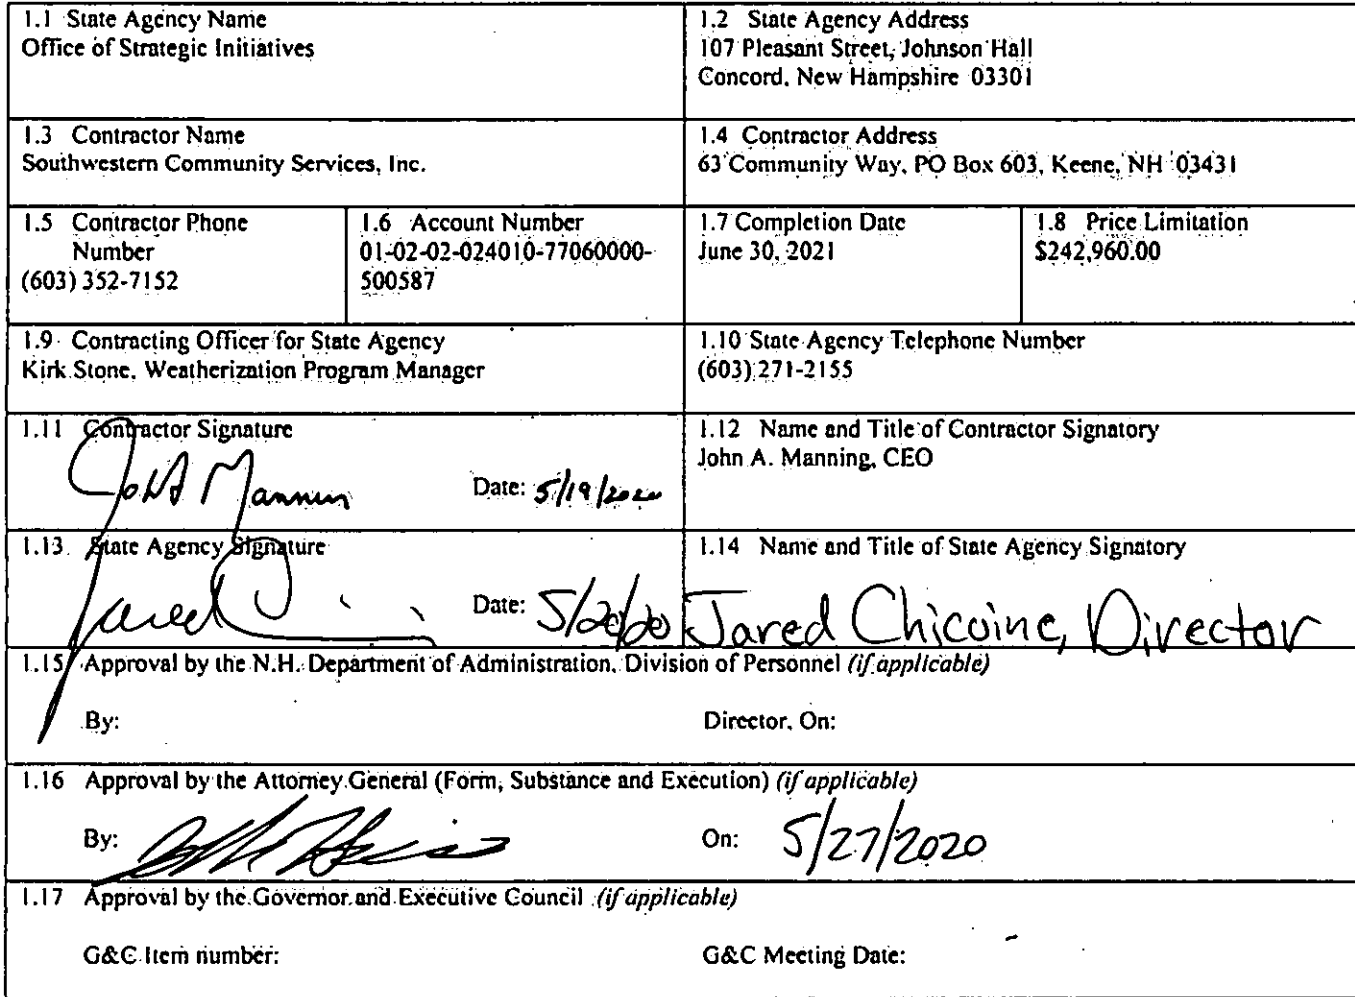 1.1 State Agency Name
Office of Strategic Initiatives
1.2 State Agency Address
107 Pleasant Street, Johnson Hall
Concord, New Hampshire 03301
1.3 Contractor Name
Southwestern Community Services, Inc.
1.4 Contractor Address
63 Community Way, PO Box 603, Keene, NH 03431
1.5 Contractor Phone
Number
(603) 352-7152
1.6 Account Number
01-02-02-024010-77060000-
500587
1.7 Completion Date
June 30, 2021
1.8 Price Limitation
$242,960.00
1.9 Contracting Officer for State Agency
Kirk Stone, Weatherization Program Manager
1.10 State Agency Telephone Number
(603) 271-2155
1.11 Contractor Signature
John Manning
Date: 5/19/2020
1.12 Name and Title of Contractor Signatory
John A. Manning, CEO
1.13 State Agency Signature
Jared
Date: 5/20/20
1.14 Name and Title of State Agency Signatory
Jared Chicoine, Director
1.15 Approval by the N.H. Department of Administration, Division of Personnel (if applicable)
By:
Director, On:
1.16 Approval by the Attorney General (Form, Substance and Execution) (if applicable)
By:
On: 5/27/2020
1.17 Approval by the Governor and Executive Council (if applicable)
G&C Item number:
G&C Meeting Date: